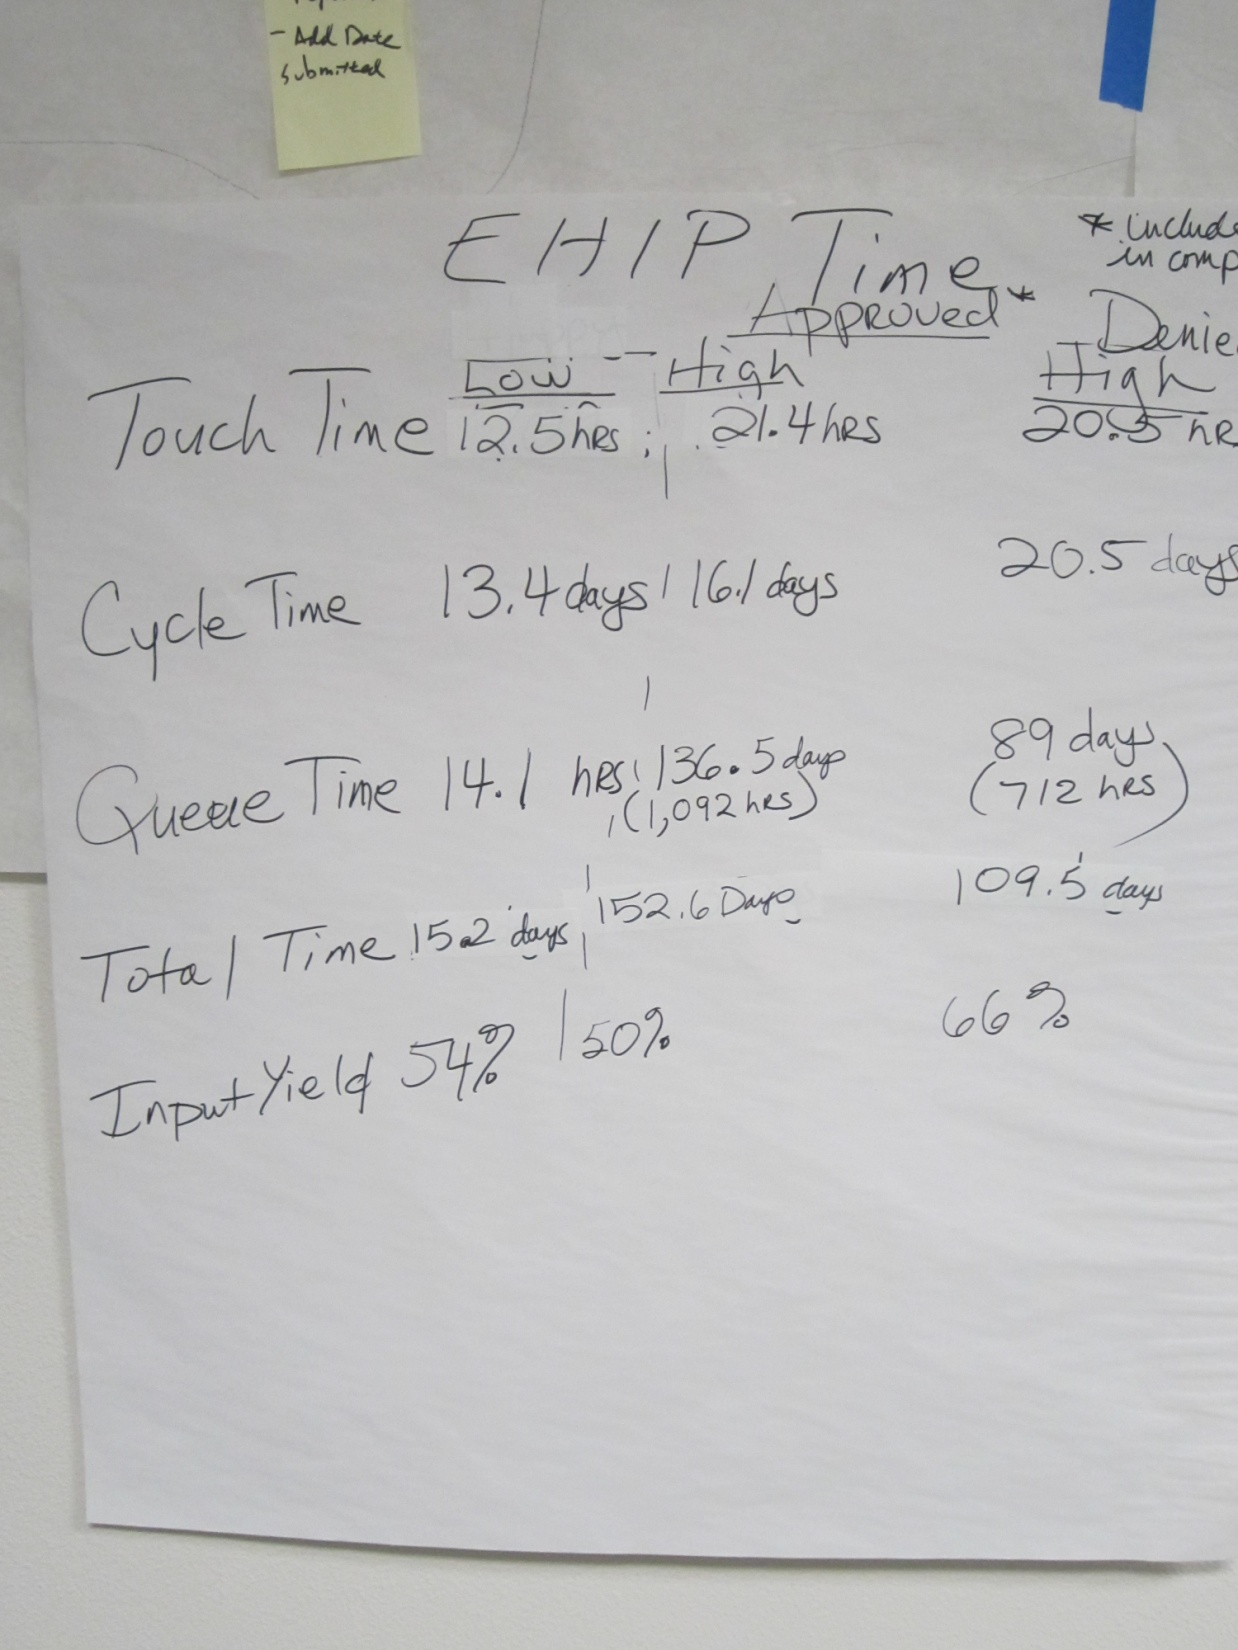 - Add Date
submitted
EHIP Time
* include
in comp
Approved*
Denie
Low -- High
High
Touch Time 12.5 hrs 21.4 hrs 20.5 hr
Cycle Time 13.4 days 16.1 days 20.5 days
Queue Time 14.1 hrs 136.5 days 89 days
(1,092 hrs) (712 hrs)
Total Time 15.2 days 152.6 Days 109.5 days
Input Yield 54% 50% 66%